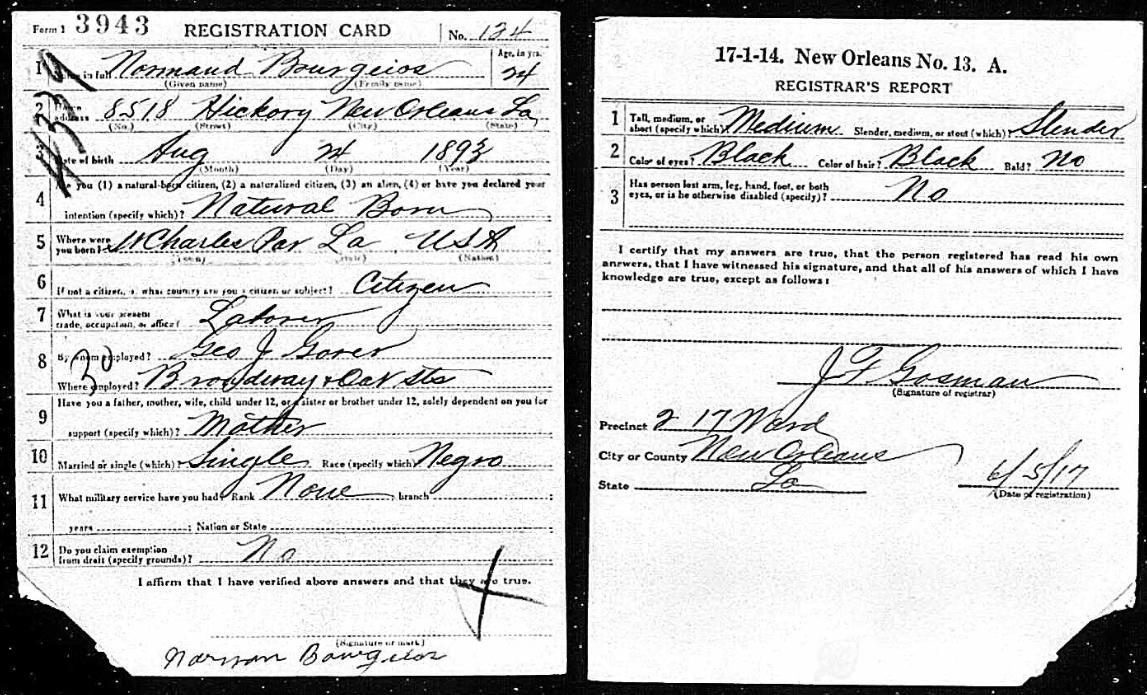 Form 1 3943 REGISTRATION CARD No. 124
1 Name in full Normand Bourgeios Age, in yrs. 24
(Given name) (Family name)
2 Home address 8518 Hickory New Orleans La
(No.) (Street) (City) (State)
3 Date of birth Aug 24 1893
(Month) (Day) (Year)
4 Are you (1) a natural-born citizen, (2) a naturalized citizen, (3) an alien, (4) or have you declared your
intention (specify which)? Natural Born
5 Where were you born? St Charles Par La USA
(Town) (State) (Nation)
6 If not a citizen, of what country are you a citizen or subject? Citizen
7 What is your present trade, occupation, or office? Laborer
8 By whom employed? Geo J
Where employed? Broadway + Oak sts
30
9 Have you a father, mother, wife, child under 12, or a sister or brother under 12, solely dependent on you for
support (specify which)? Mother
10 Married or single (which)? Single Race (specify which) Negro
11 What military service have you had? Rank None, branch ;
years ; Nation or State
12 Do you claim exemption from draft (specify grounds)? No
I affirm that I have verified above answers and that they are true.
(Signature or mark)
Norman Bourgeios
17-1-14. New Orleans No. 13. A.
REGISTRAR'S REPORT
1 Tall, medium, or short (specify which)? Medium Slender, medium, or stout (which)? Slender
2 Color of eyes? Black Color of hair? Black Bald? No
3 Has person lost arm, leg, hand, foot, or both
eyes, or is he otherwise disabled (specify)? No
I certify that my answers are true, that the person registered has read his own
answers, that I have witnessed his signature, and that all of his answers of which I have
knowledge are true, except as follows:
J F Gosman
(Signature of registrar)
Precinct 2 17 Ward
City or County New Orleans
State La 6/5/17
(Date of registration)